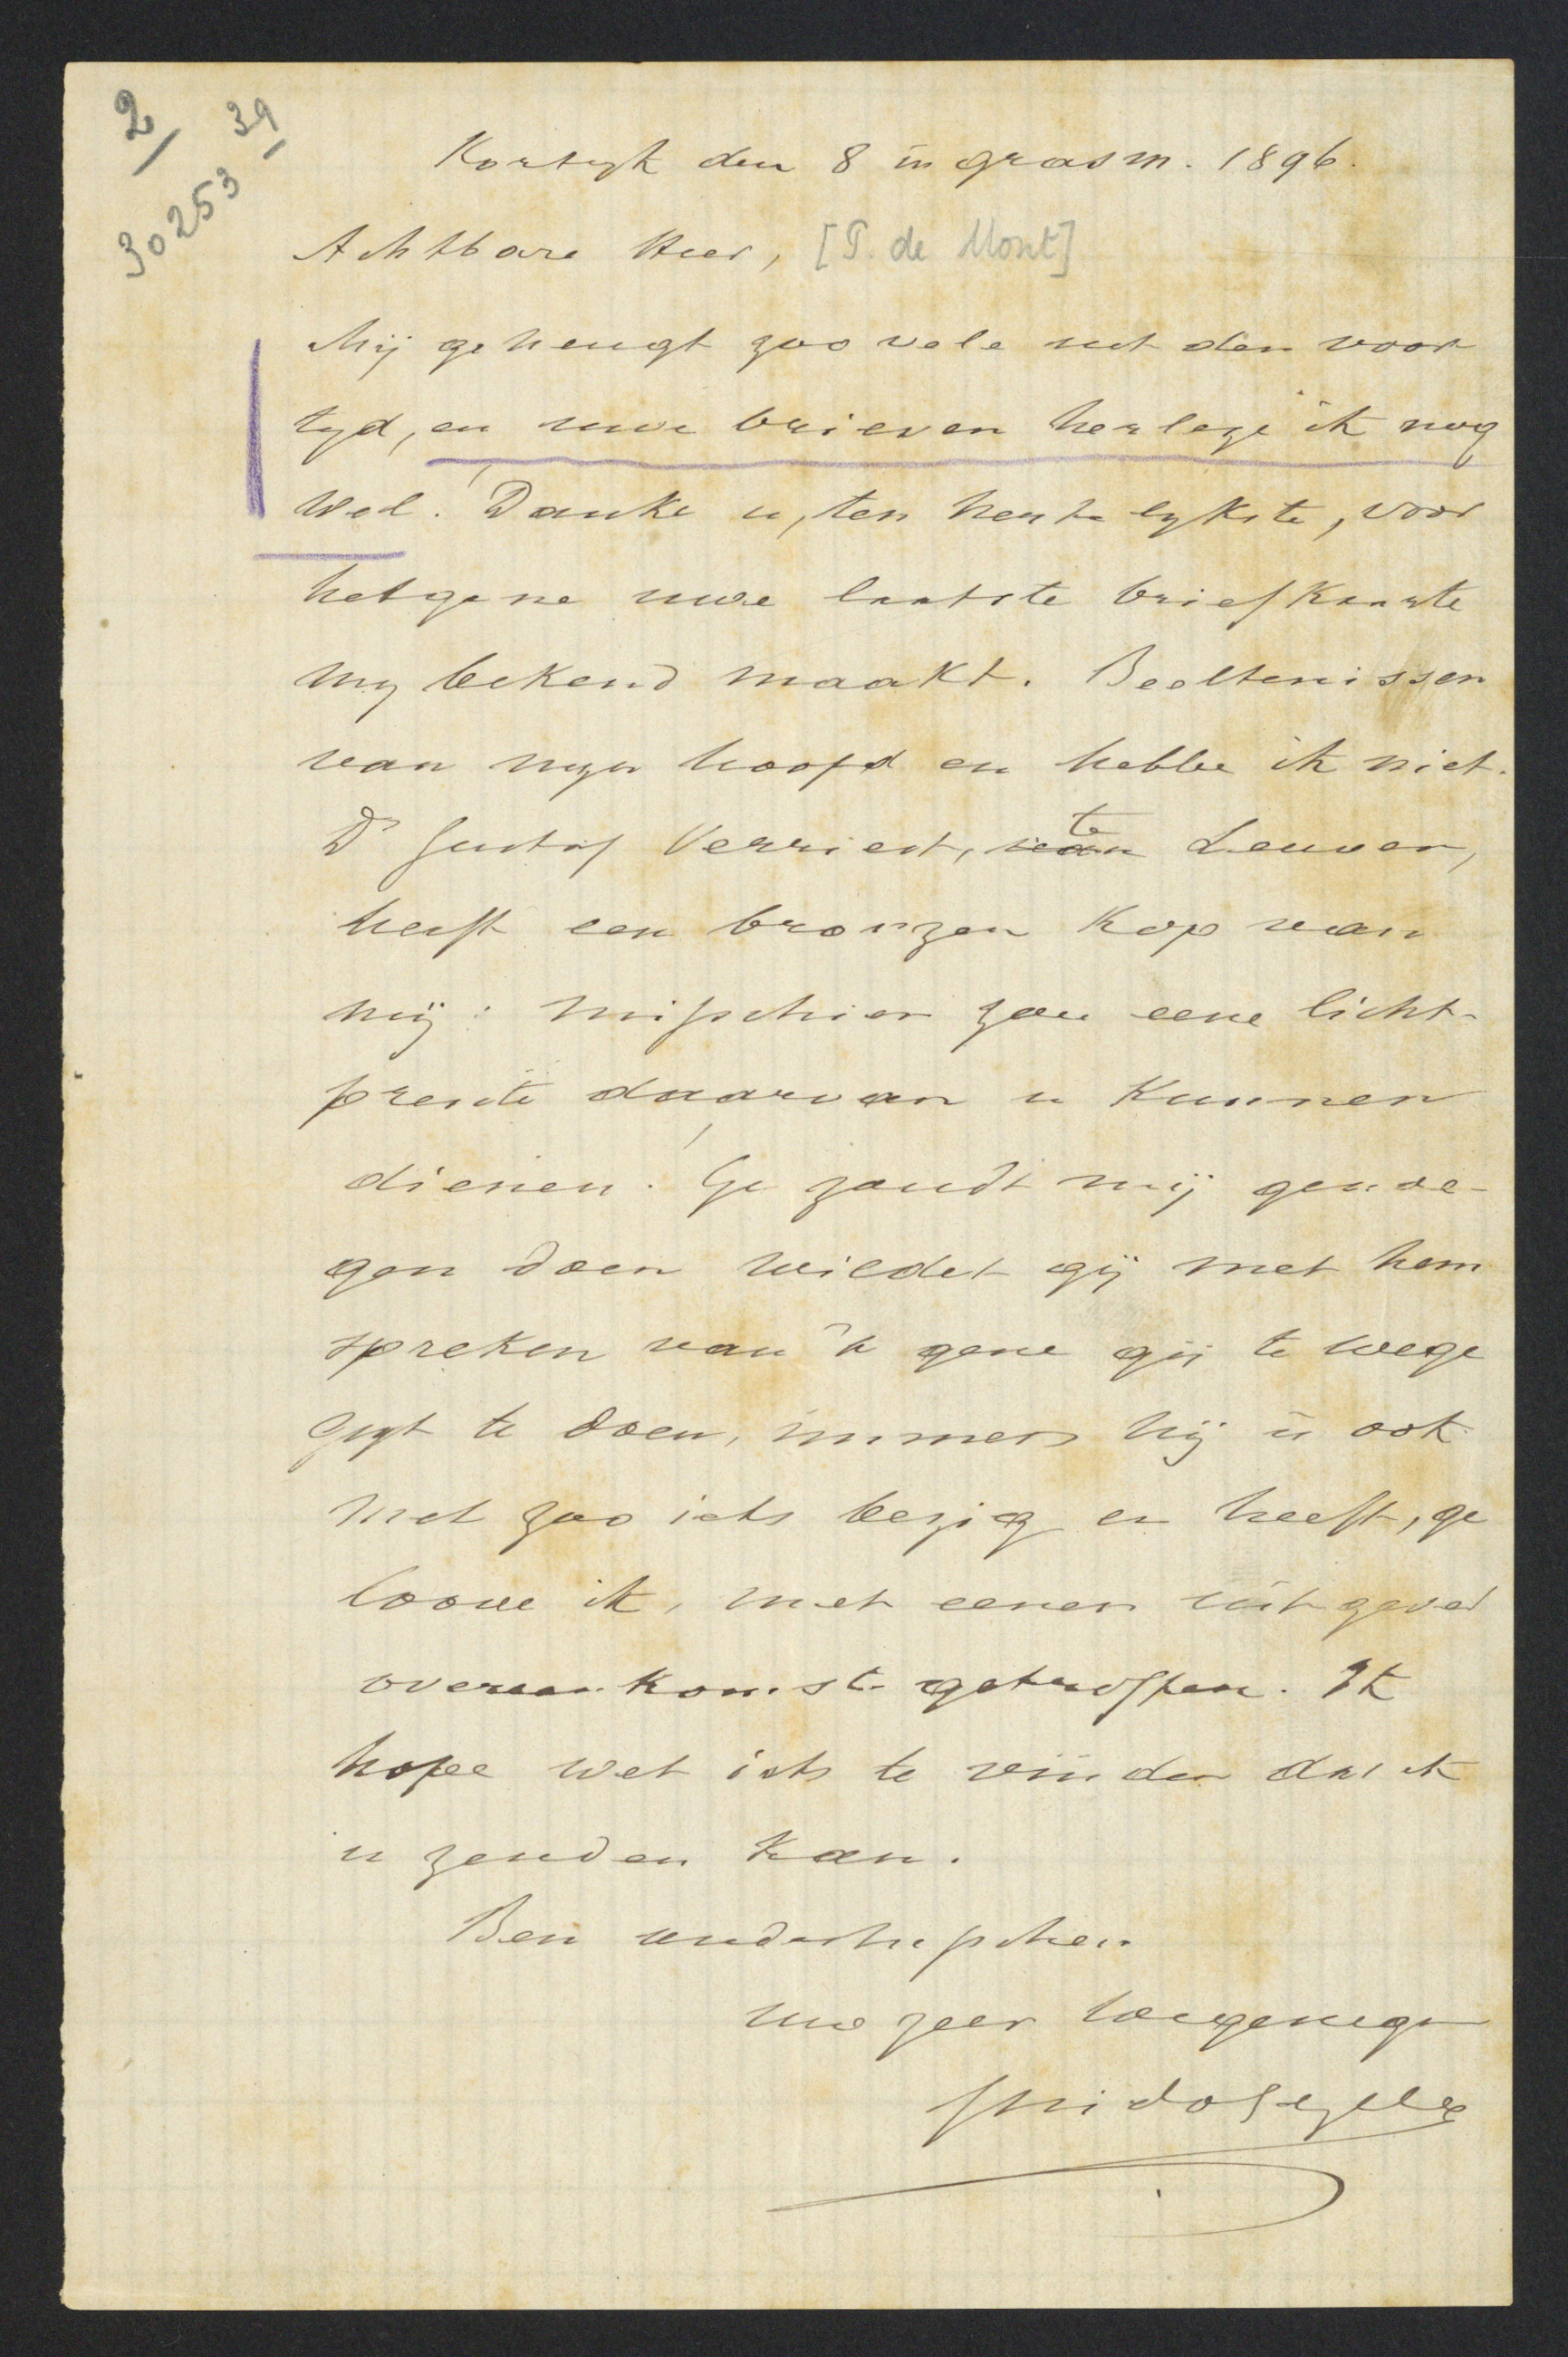 2/
39
30253
Kortryk den 8 in grasm. 1896.
Achtbare Heer, [P. de Mont]
Mij geheugt zoo vele uit den voor
tyd, en uwe brieven herleze ik nog
wel. Danke u, ten hertelykste, voor
hetgene uwe laatste briefkaarte
my bekend maakt. Beeltenissen
van myn hoofd en hebbe ik niet.
Dr Gustaf Verriest, van te Leuven,
heeft een bronzen kop van
mij: misschien zou eene licht-
prente daarvan u kunnen
dienen. Ge zoudt mij genoe-
gen doen wildet gij met hem
spreken van 't gene gij te wege
zegt te doen, immers hij is ook
met zoo iets bezig en heeft, ge
loove ik, met eenen uitgever
overeenkomste getroffen. Ik
hope wel iets te vinden dat ik
u zenden kan.
Ben onderhusschen
uw zeer toegenegen
Guido Gezelle